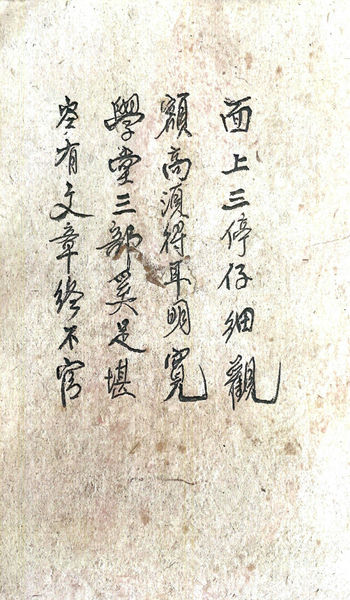 面上三停仔细觀
額高須得耳明寬
學堂三部奚足堪
空有文章終不官